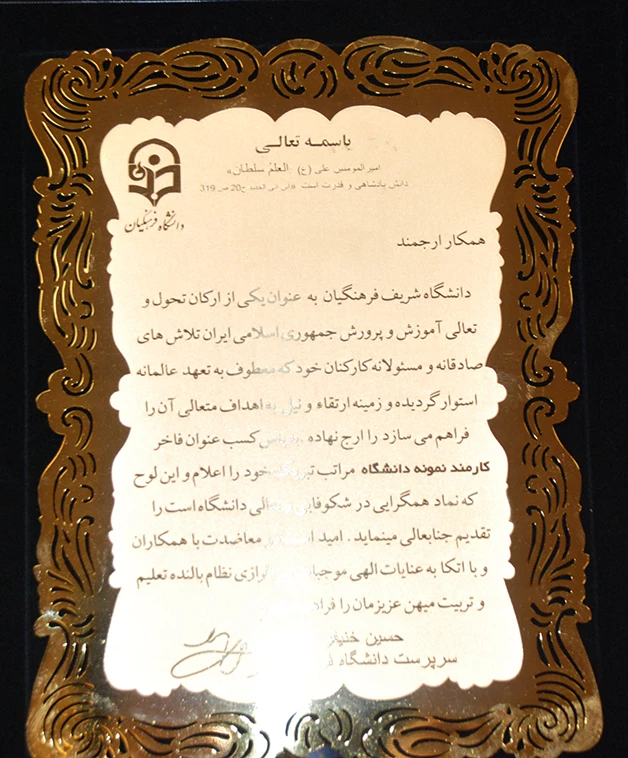 باسمه تعالی
امیرالمومنین علی (ع) العلمُ سلطان»
دانش پادشاهی و قدرت است ج20 ص 319
دانشگاه فرهنگیان
همکار ارجمند
دانشگاه شریف فرهنگیان به عنوان یکی از ارکان تحول و
تعالی آموزش و پرورش جمهوری اسلامی ایران تلاش های
صادقانه و مسئولانه کارکنان خود که معطوف به تعهد عالمانه
استوار گردیده و زمینه ارتقاء و نیل به اهداف متعالی آن را
فراهم می سازد را ارج نهاده کسب عنوان فاخر
کارمند نمونه دانشگاه مراتب تبریک خود را اعلام و این لوح
که نماد همگرایی در شکوفایی و تعالی دانشگاه است را
تقدیم جنابعالی مینماید . امید است معاضدت با همکاران
و با اتکا به عنایات الهی نظام بالنده تعلیم
و تربیت میهن عزیزمان را
حسین خنیفر
سرپرست دانشگاه